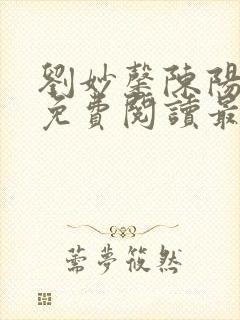 劉妙馨陳陽
免費閱讀最
薷夢筱然